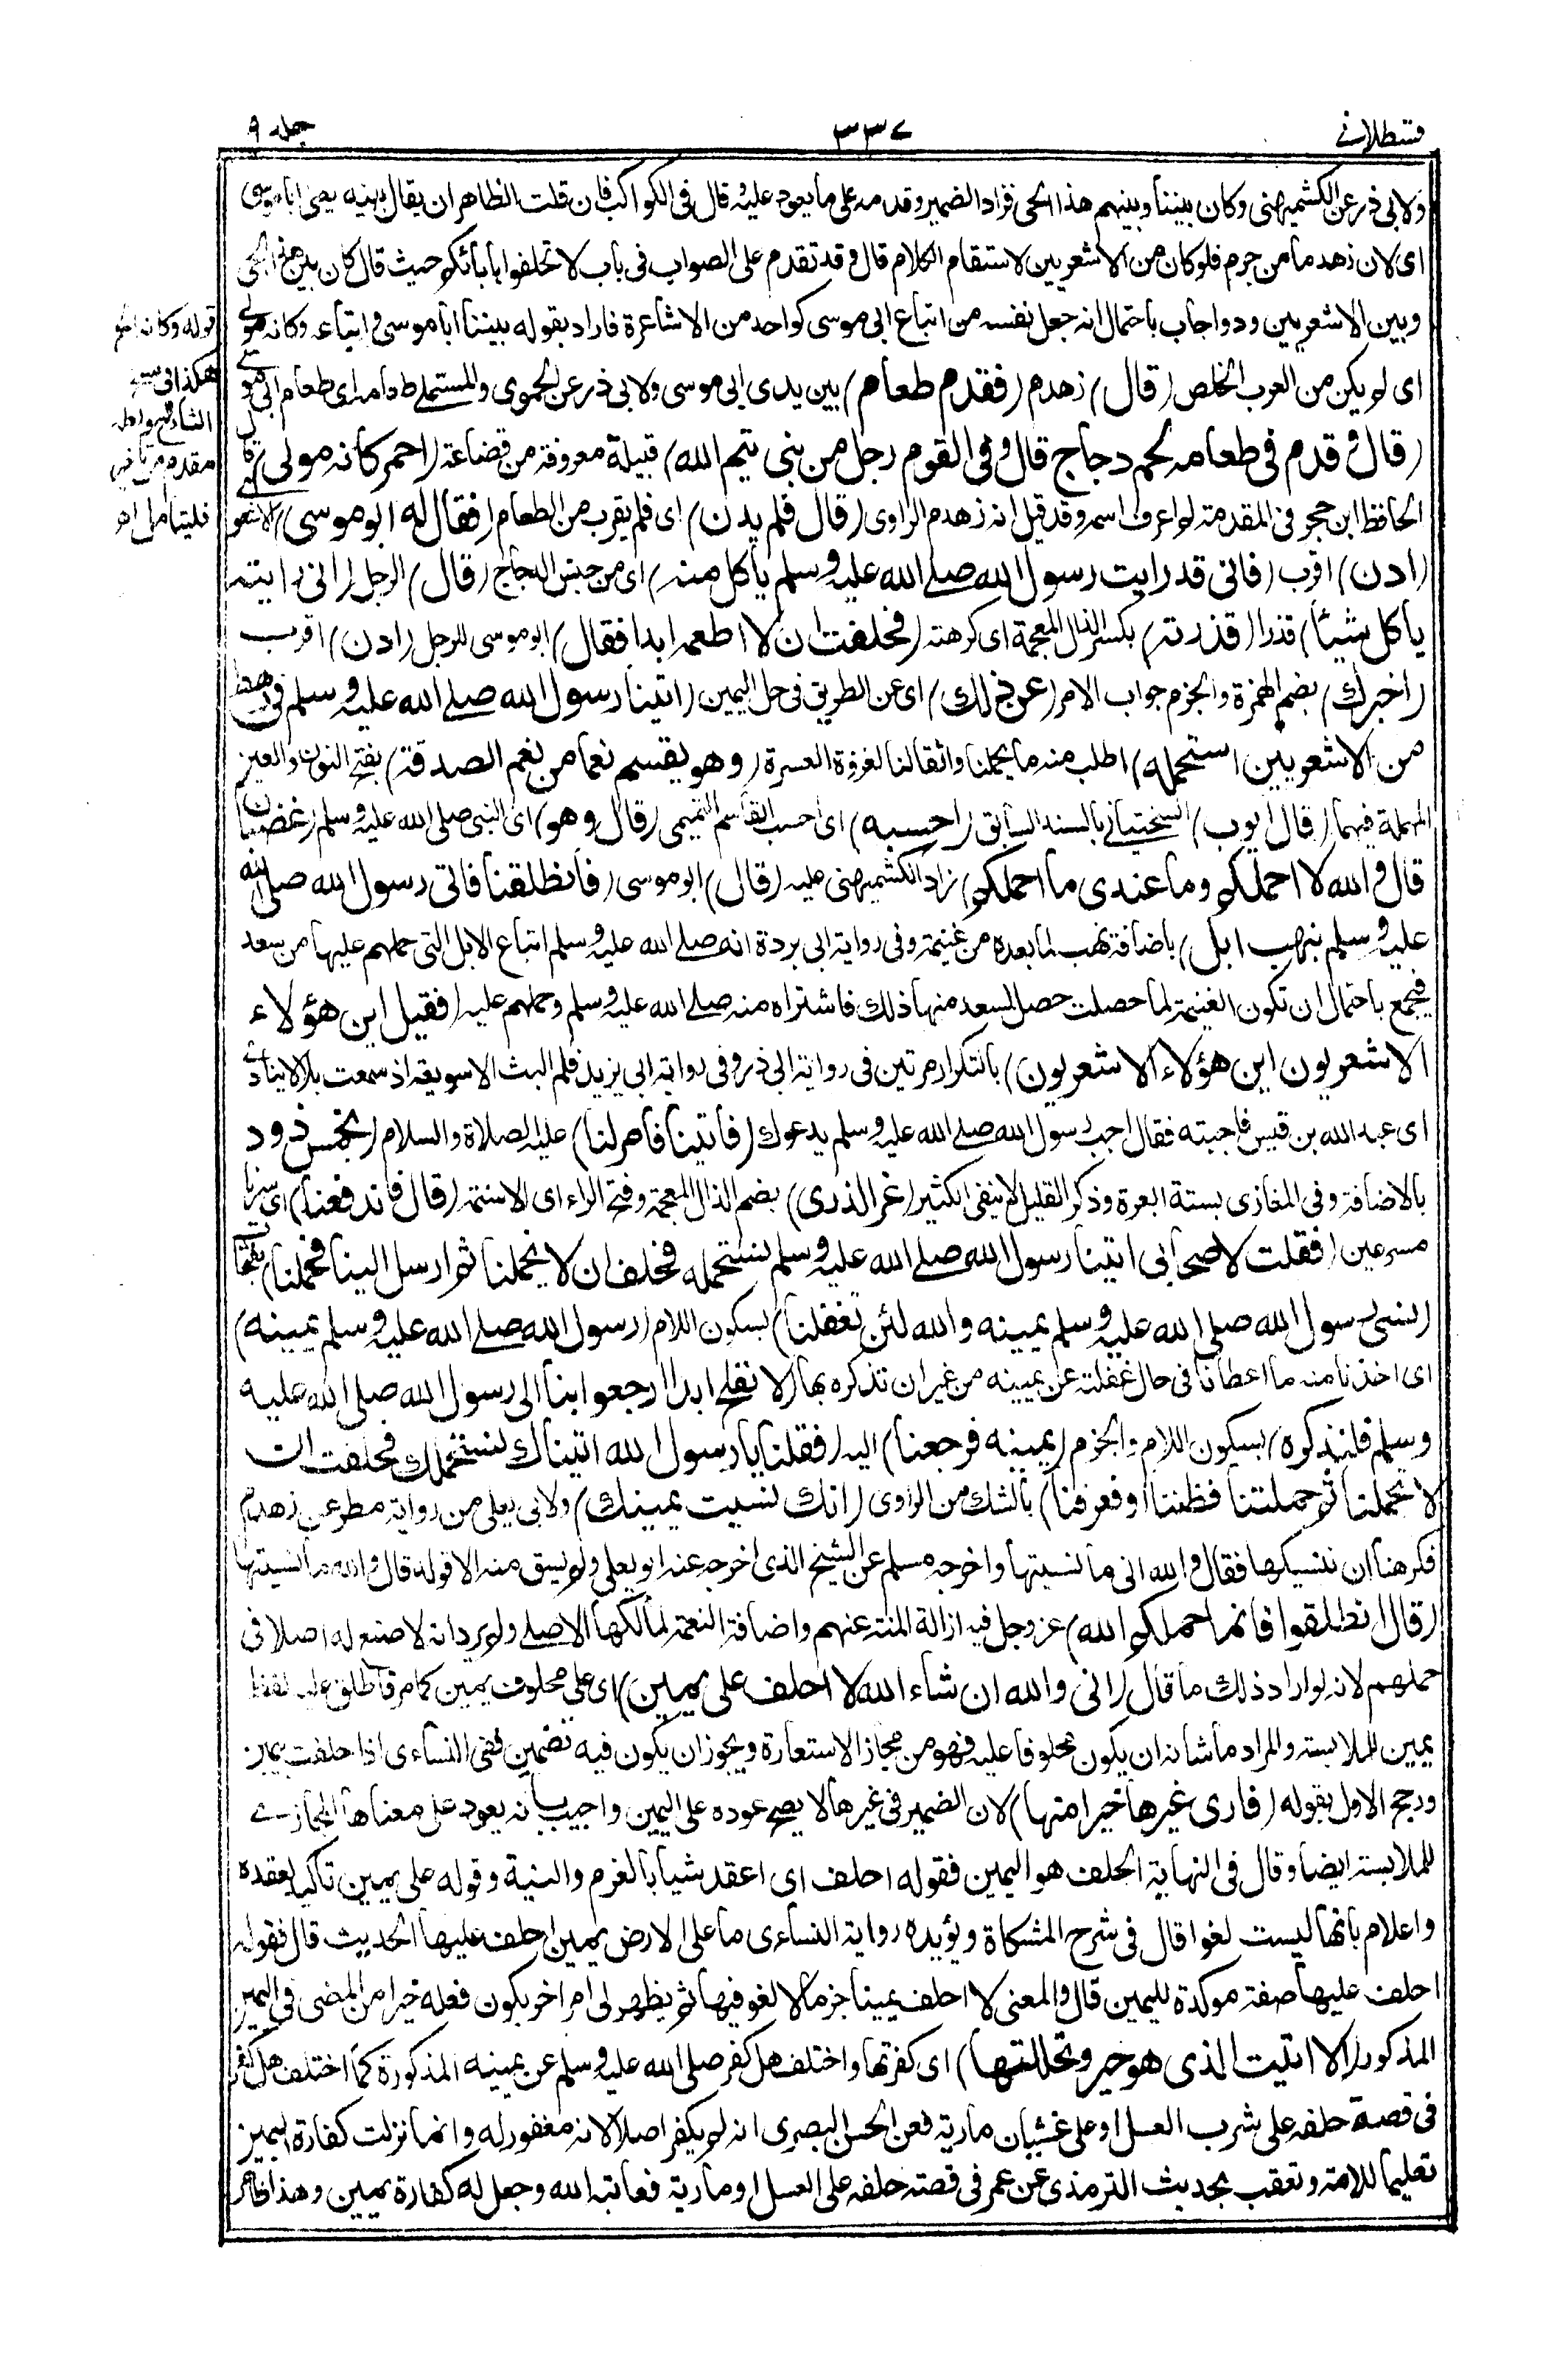 قسطلاني ٣٣٧ جلد ٩
ولابي ذر عن الكشميهني وكان بيننا وبينهم هذا الحي فزاد الضمير وقدمه على ما يعود عليه قال في الكواكب فان قلت الظاهر ان يقال بينه يعني ابا موسى
اى لان زهدما من جرم فلو كان من الاشعريين لاستقام الكلام قال وقد تقدم على الصواب في باب لا تحلفوا بابائكم حيث قال كان بين هذا الحي
وبين الاشعريين ود واجاب باحتمال انه جعل نفسه من اتباع ابي موسى كواحد من الاشاعرة فاراد بقوله بيننا ابا موسى واتباعه وكانه مولى
اى لم يكن من العرب الخلص (قال) زهدم (فقدم طعام) بين يدى ابي موسى ولابي ذر عن الحموى والمستملي طعامه اى طعام ابي موسى
(قال وقدم في طعامه لحم دجاج قال وفي القوم رجل من بني تيم الله) قبيلة معروفة من قضاعة (احمر كانه مولى) قال
الحافظ ابن حجر في المقدمة لم اعرف اسمه وقد قيل انه زهدم الراوى (قال فلم يدن) اى فلم يقرب من الطعام (فقال له ابو موسى) الاشعرى
(ادن) اقرب (فاني قد رايت رسول الله صلى الله عليه وسلم ياكل منه) اى من جنس الدجاج (قال) الرجل (اني رايته
ياكل شيئا) قذرا (قذرته) بكسر الذال المعجمة اى كرهته (فحلفت ان لا اطعمه ابدا فقال) ابو موسى للرجل (ادن) اقرب
(اخبرك) بضم الهمزة والجزم جواب الامر (عن ذلك) اى عن الطريق في حل اليمين (اتينا رسول الله صلى الله عليه وسلم في رهط
من الاشعريين استحمله) اطلب منه ما يحملنا واثقالنا لغزوة العسرة (وهو يقسم نعما من نعم الصدقة) بفتح النون والعين
المهملة فيهما (قال ايوب) السختياني بالسند السابق (احسبه) اى احسب القاسم التميمي (قال وهو) اى النبي صلى الله عليه وسلم (غضبان
قال والله لا احملكم وما عندى ما احملكم) زاد الكشميهني عليه (قال) ابو موسى (فانطلقنا فاتي رسول الله صلى الله
عليه وسلم بنهب ابل) باضافة نهب لما بعده من غنيمة وفي رواية ابي بردة انه صلى الله عليه وسلم ابتاع الابل التي حملهم عليها من سعد
فيجمع باحتمال ان تكون الغنيمة لما حصلت حصل لسعد منها ذلك فاشتراه منه صلى الله عليه وسلم وحملهم عليه (فقيل اين هؤلاء
الاشعريون اين هؤلاء الاشعريون) بالتكرار مرتين في رواية ابي ذر وفي رواية ابي يزيد فلم البث الا سويعة اذ سمعت بلالا ينادى
اى عبد الله بن قيس فاجبته فقال اجب رسول الله صلى الله عليه وسلم يدعوك (فاتينا فامر لنا) عليه الصلاة والسلام (بخمس ذود
بالاضافة وفي المغازى بستة ابعرة وذكر القليل لا ينفي الكثير (غر الذرى) بضم الذال المعجمة وفتح الراء اى الاسنمة (قال فاندفعنا) اى سرنا
مسرعين (فقلت لاصحابي اتينا رسول الله صلى الله عليه وسلم نستحمله فحلف ان لا يحملنا ثم ارسل الينا فحملنا)
(نسي رسول الله صلى الله عليه وسلم يمينه والله لئن تغفلنا) بسكون اللام (رسول الله صلى الله عليه وسلم يمينه)
اى اخذنا منه ما اعطانا في حال غفلته عن يمينه من غير ان نذكره بها (لا نفلح ابدا ارجعوا بنا الى رسول الله صلى الله عليه
وسلم فلنذكره) بسكون اللام والجزم (يمينه فرجعنا) اليه (فقلنا يا رسول الله اتيناك نستحملك فحلفت ان
لا تحملنا ثم حملتنا فظننا او فعرفنا) بالشك من الراوى (انك نسيت يمينك) ولابي يعلى من رواية مطر عن زهدم
فكرهنا ان ننسيكها فقال والله اني ما نسيتها واخرجه مسلم عن الشيخ الذى اخرجه عنه ابو يعلى ولم يسق منه الا قوله قال والله ما نسيتها
(قال انطلقوا فانما احملكم الله) عز وجل فيه ازالة المنة عنهم واضافة النعمة لمالكها الاصلي ولم يرد انه لا صنع له اصلا في
حملهم لانه لو اراد ذلك ما قال (اني والله ان شاء الله لا احلف على يمين) اى على محلوف يمين كما مر فاطلق عليه لفظ
يمين للملابسة والمراد ما شانه ان يكون محلوفا عليه فهو من مجاز الاستعارة ويجوز ان يكون فيه تضمين ففي النساءى اذا حلفت بيمين
ورجح الاول بقوله (فارى غيرها خيرا منها) لان الضمير في غيرها لا يصح عوده على اليمين واجيب بانه يعود على معناها المجازي
للملابسة ايضا وقال في النهاية الحلف هو اليمين فقوله احلف اى اعقد شيا بالعزم والنية وقوله على يمين تاكيد لعقده
واعلام بانها ليست لغوا قال في شرح المشكاة ويؤيده رواية النساءى ما على الارض يمين احلف عليها الحديث قال فقوله
احلف عليها صفة موكدة لليمين قال والمعنى لا احلف يمينا جزما لا لغو فيها ثم يظهر لي امر اخر يكون فعله خيرا من المضي في اليمين
المذكور (الا اتيت الذى هو خير وتحللتها) اى كفرتها واختلف هل كفر صلى الله عليه وسلم عن يمينه المذكورة كما اختلف هل كفر
في قصة حلفه على شرب العسل او على غشيان مارية فعن الحسن البصرى انه لم يكفر اصلا لانه مغفور له وانما نزلت كفارة اليمين
تعليما للامة وتعقب بحديث الترمذى عن عمر في قصة حلفه على العسل او مارية فعاتبه الله وجعل له كفارة يمين وهذا ظاهر
قوله وكانه الخ
هكذا في نسخ
الشارح ولعله
مقدم من تاخير
فليتامل اهـ